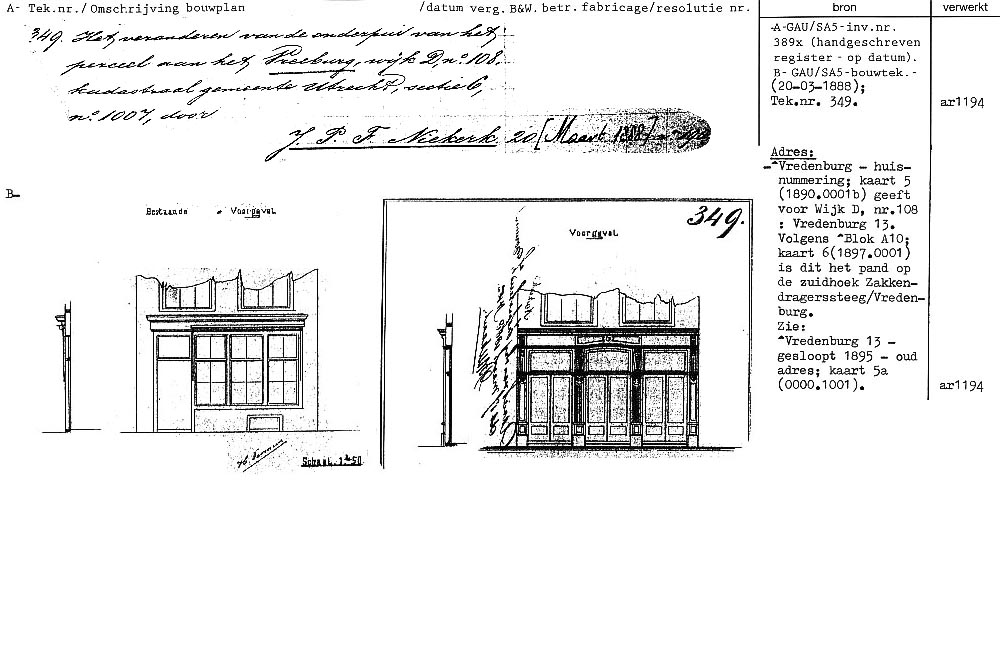 A- Tek.nr./ Omschrijving bouwplan /datum verg. B&W. betr. fabricage/resolutie nr. bron verwerkt
349. Het veranderen van de onderpui van het
perceel aan het Vreeburg, wijk D, nº 108,
kadastraal gemeente Utrecht, sectie C,
nº 1007, door
J. P. F. Niekerk 20 [Maart 1888]
-A-GAU/SA5-inv.nr.
389x (handgeschreven
register - op datum).
B- GAU/SA5-bouwtek.-
(20-03-1888);
Tek.nr. 349. ar1194
Adres:
-^Vredenburg - huis-
nummering; kaart 5
(1890.0001b) geeft
voor Wijk D, nr.108
: Vredenburg 13.
Volgens ^Blok A10;
kaart 6(1897.0001)
is dit het pand op
de zuidhoek Zakken-
dragerssteeg/Vreden-
burg.
Zie:
^Vredenburg 13 -
gesloopt 1895 - oud
adres; kaart 5a
(0000.1001). ar1194
B-
Bestaande Voorgevel
Schaal 1 à 50
349.
Voorgevel